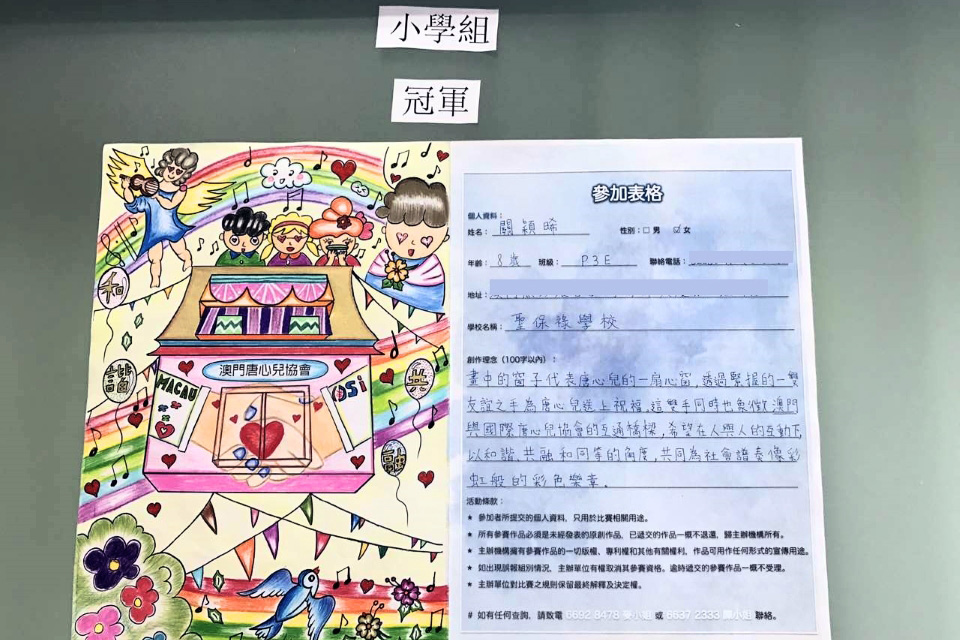 小學組
冠軍
和
諧
共
融
澳門唐心兒協會
MACAU
DSi
參加表格
個人資料：
姓名： 關穎晞 性別：□男 ☑女
年齡： 8歲 班級： P3E 聯絡電話：
地址：
學校名稱： 聖保祿學校
創作理念（100字以內）：
畫中的窗子代表唐心兒的一扇心窗，透過緊握的一雙
友誼之手為唐心兒送上祝福。這雙手同時也象徵澳門
與國際唐心兒協會的互通橋樑，希望在人與人的互動下，
以和諧、共融和同等的角度，共同為社會譜奏像彩
虹般的彩色樂章。
活動條款：
★ 參加者所提交的個人資料，只用於比賽相關用途。
★ 所有參賽作品必須是未經發表的原創作品，已遞交的作品一概不退還，歸主辦機構所有。
★ 主辦機構擁有參賽作品的一切版權、專利權和其他有關權利，作品可用作任何形式的宣傳用途。
★ 如出現誤報組別情況，主辦單位有權取消其參賽資格。逾時遞交的參賽作品一概不受理。
★ 主辦單位對比賽之規則保留最終解釋及決定權。
# 如有任何查詢，請致電 6692 8478 或 6637 2333 聯絡。